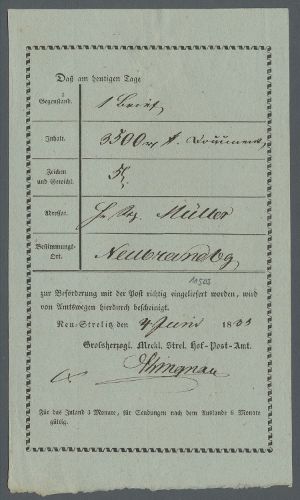 Daß am heutigen Tage
Gegenstand. 1 Brief,
Inhalt. 3500 rℓ. Document,
Zeichen
und Gewicht.
Adressat. Müller
Bestimmungs-
Ort. Neubrandbg,
zur Beförderung mit der Post richtig eingeliefert worden, wird
von Amtswegen hierdurch bescheinigt.
Neu-Strelitz den 4 Juni 18
Großherzogl. Meckl. Strel. Hof-Post-Amt.
Für das Inland 3 Monate, für Sendungen nach dem Auslande 6 Monate
gültig.